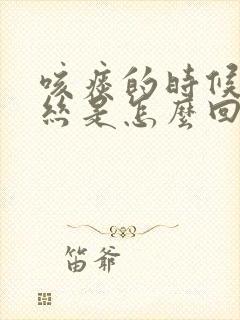 咳痰的時候
絲是怎麼回
笛爺